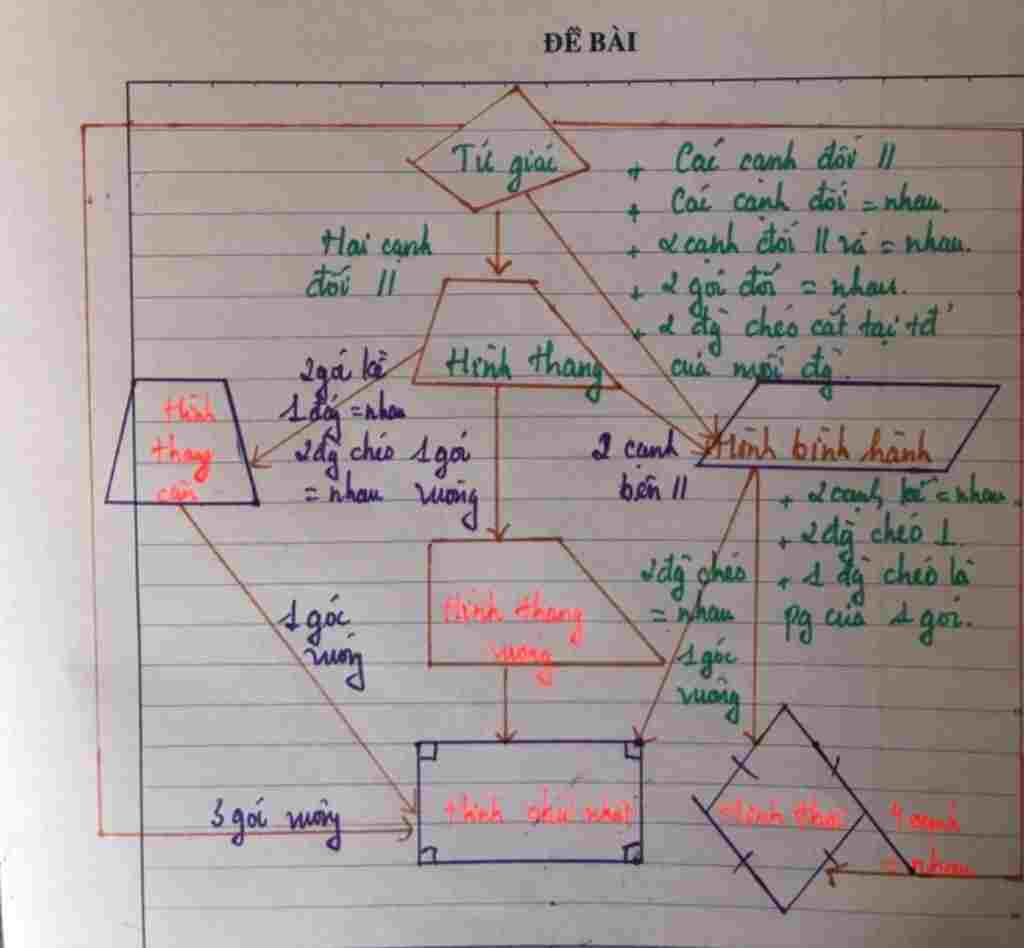 ĐỀ BÀI
Tứ giác
+ Các cạnh đối //
+ Các cạnh đối = nhau.
+ 2 cạnh đối // và = nhau.
+ 2 góc đối = nhau.
+ 2 đg chéo cắt tại tđ
của mỗi đg.
Hai cạnh
đối //
Hình thang
2 góc kề
1 đáy = nhau
2 đg chéo
= nhau
1 góc
vuông
Hình
thang
cân
2 cạnh
bên //
Hình bình hành
+ 2 cạnh kề = nhau.
+ 2 đg chéo ⊥
+ 1 đg chéo là
pg của 1 góc.
2 đg chéo
= nhau
1 góc
vuông
Hình thang
vuông
1 góc
vuông
3 góc vuông
Hình chữ nhật
Hình thoi
4 cạnh
= nhau